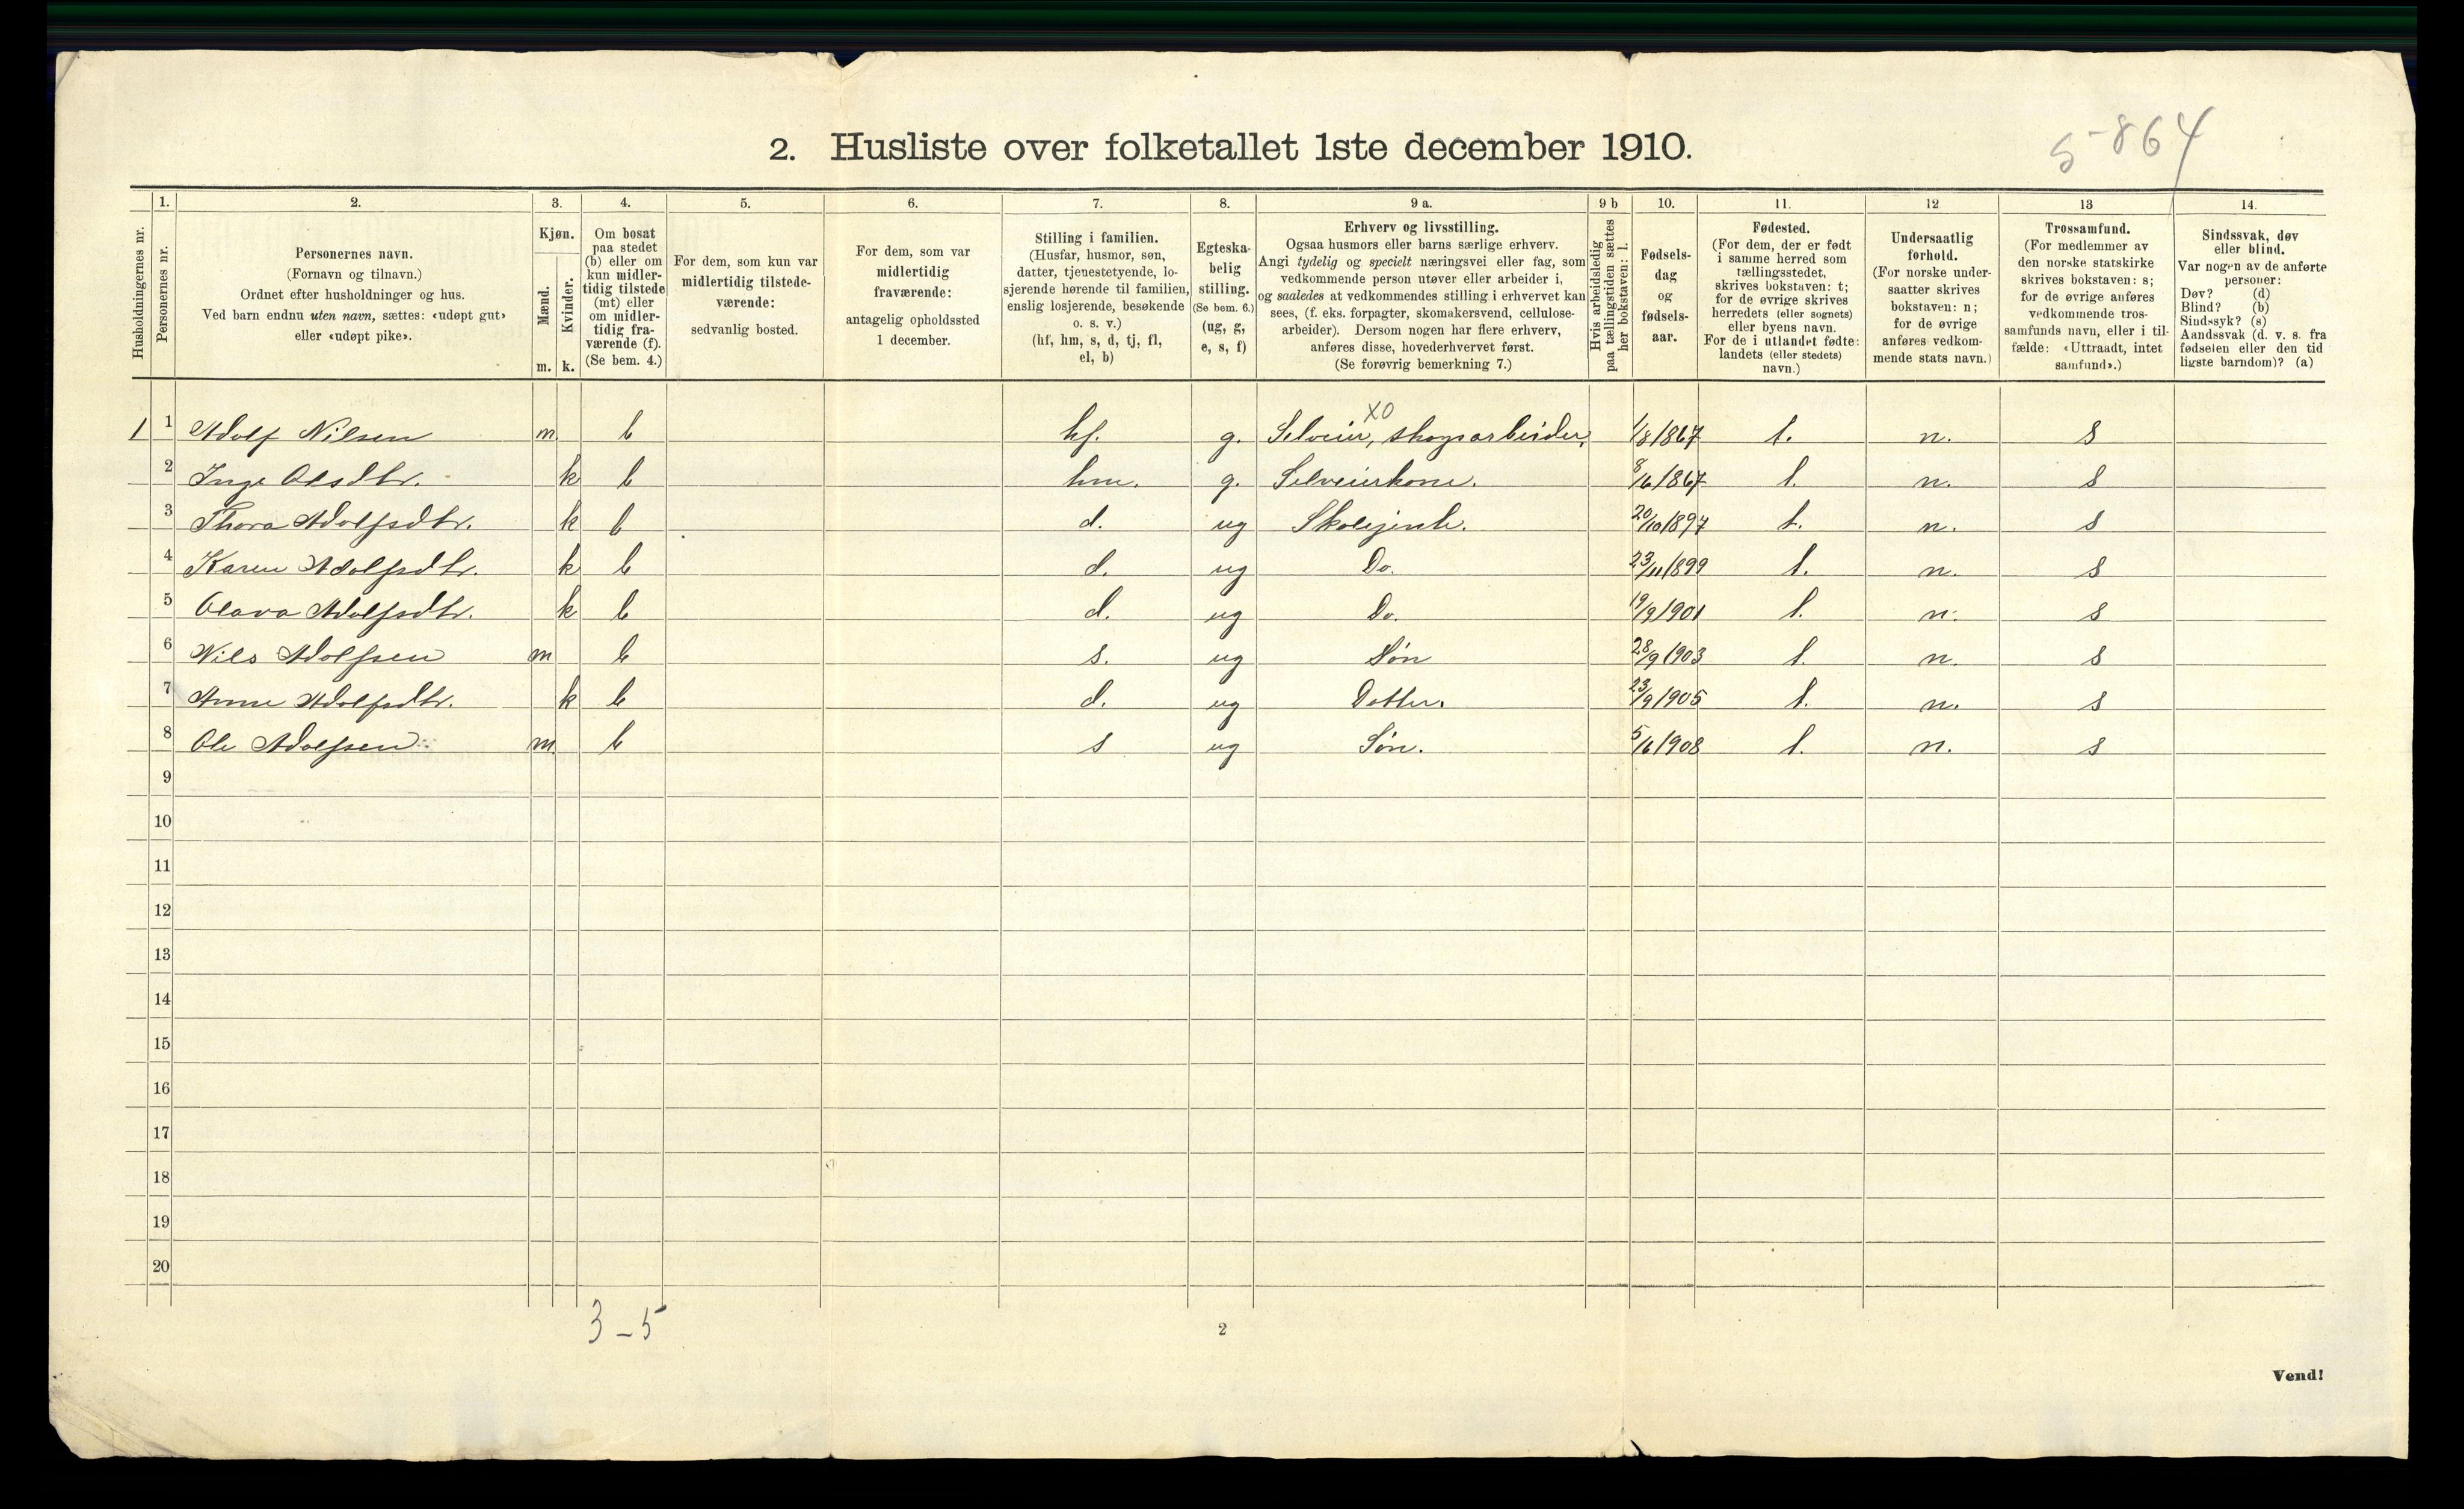 5-864
2. Husliste over folketallet 1ste december 1910.
1. 2. 3. 4. 5. 6. 7. 8. 9 a. 9 b 10. 11. 12 13 14.
Husholdningernes nr.
Personernes nr.
Personernes navn.
(Fornavn og tilnavn.)
Ordnet efter husholdninger og hus.
Ved barn endnu uten navn, sættes: «udøpt gut»
eller «udøpt pike».
Kjøn.
Mænd.
Kvinder.
m. k.
Om bosat
paa stedet
(b) eller om
kun midler-
tidig tilstede
(mt) eller
om midler-
tidig fra-
værende (f).
(Se bem. 4.)
For dem, som kun var
midlertidig tilstede-
værende:
sedvanlig bosted.
For dem, som var
midlertidig
fraværende:
antagelig opholdssted
1 december.
Stilling i familien.
(Husfar, husmor, søn,
datter, tjenestetyende, lo-
sjerende hørende til familien,
enslig losjerende, besøkende
o. s. v.)
(hf, hm, s, d, tj, fl,
el, b)
Egteska-
belig
stilling.
(Se bem. 6.)
(ug, g,
e, s, f)
Erhverv og livsstilling.
Ogsaa husmors eller barns særlige erhverv.
Angi tydelig og specielt næringsvei eller fag, som
vedkommende person utøver eller arbeider i,
og saaledes at vedkommendes stilling i erhvervet kan
sees, (f. eks. forpagter, skomakersvend, cellulose-
arbeider). Dersom nogen har flere erhverv,
anføres disse, hovederhvervet først.
(Se forøvrig bemerkning 7.)
Hvis arbeidsledig
paa tællingstiden sættes
her bokstaven: l.
Fødsels-
dag
og
fødsels-
aar.
Fødested.
(For dem, der er født
i samme herred som
tællingsstedet,
skrives bokstaven: t;
for de øvrige skrives
herredets (eller sognets)
eller byens navn.
For de i utlandet fødte:
landets (eller stedets)
navn.)
Undersaatlig
forhold.
(For norske under-
saatter skrives
bokstaven: n;
for de øvrige
anføres vedkom-
mende stats navn.)
Trossamfund.
(For medlemmer av
den norske statskirke
skrives bokstaven: s;
for de øvrige anføres
vedkommende tros-
samfunds navn, eller i til-
fælde: «Uttraadt, intet
samfund».)
Sindssvak, døv
eller blind.
Var nogen av de anførte
personer:
Døv? (d)
Blind? (b)
Sindssyk? (s)
Aandssvak (d. v. s. fra
fødselen eller den tid
ligste barndom)? (a)
XO
1 1 Adolf Nilsen m. b hf. g. Selveier, skogsarbeider, 1/8 1867 t. n. s
2 Inge Olsdtr. k b hm. g. Selveierkone. 8/6 1867 t. n. s
3 Thora Adolfsdtr. k b d. ug Skolejente. 20/10 1897 t. n. s
4 Karen Adolfsdtr. k b d. ug Do. 23/11 1899 t. n. s
5 Olava Adolfsdtr. k b d. ug Do. 19/9 1901 t. n. s
6 Nils Adolfsen m b s. ug Søn 28/9 1903 t. n. s
7 Anne Adolfsdtr. k b d. ug Datter. 23/9 1905 t. n. s
8 Ole Adolfsen m. b s ug Søn. 5/6 1908 t. n. s
9
10
11
12
13
14
15
16
17
18
19
20
3-5
2
Vend!